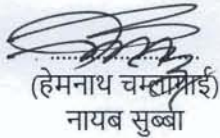 (हेमनाथ चम्लागाई)
नायब सुब्बा